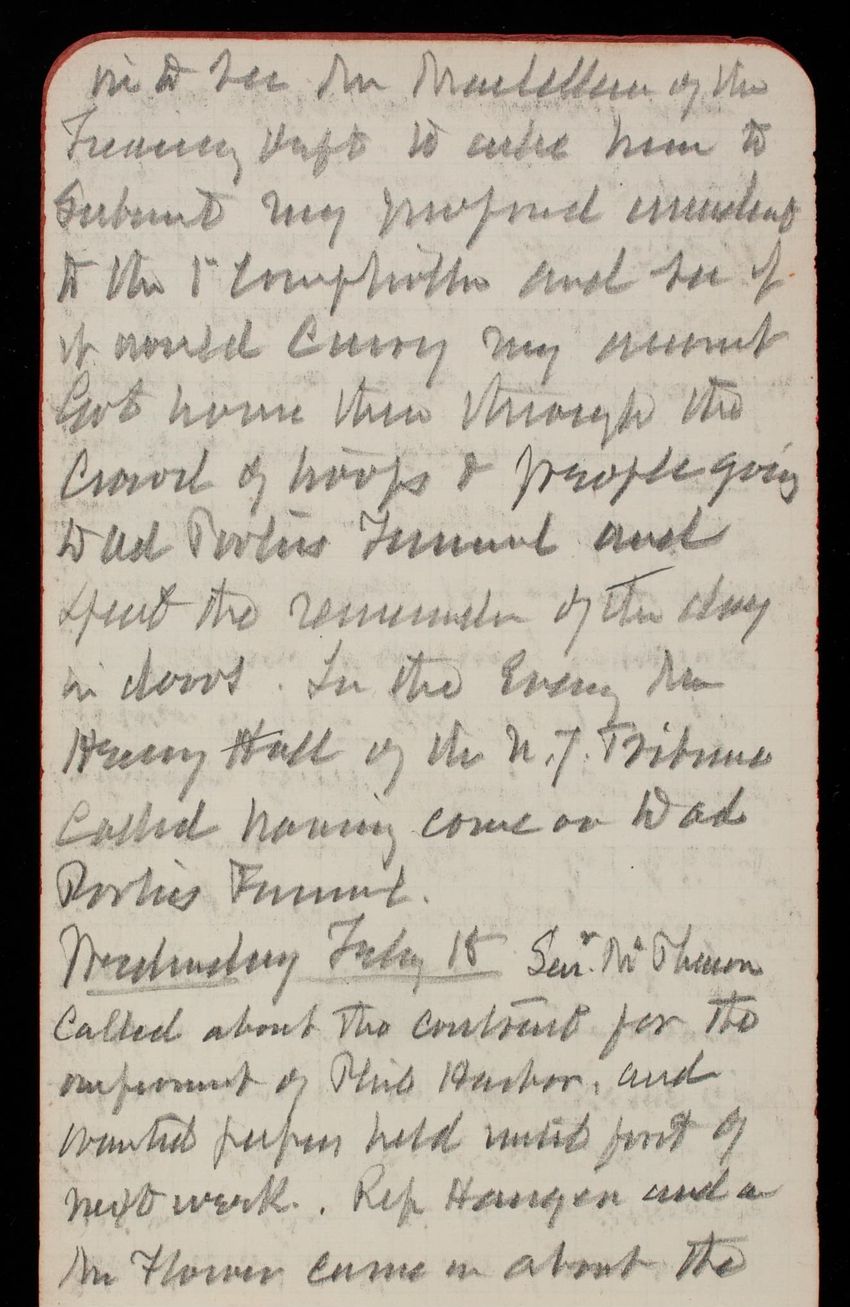 in to see Mr of the
Treasury Dept to ask him to
submit my proposed amendment
to the 1st Comptroller and see if
it would carry my amount
Got home then through the
crowd of troops & people going
to Ad Porters Funeral and
spent the remainder of the day
in doors. In the Evening Mr
Henry Hall of the N.Y. Tribune
called having come on to Ad
Porters Funeral.
Wednesday July 18 Senr McPherson
called about the contract for the
improvement of Phila Harbor, and
wanted papers held until first of
next week. Rep Haugen and a
Mr Flower came in about the